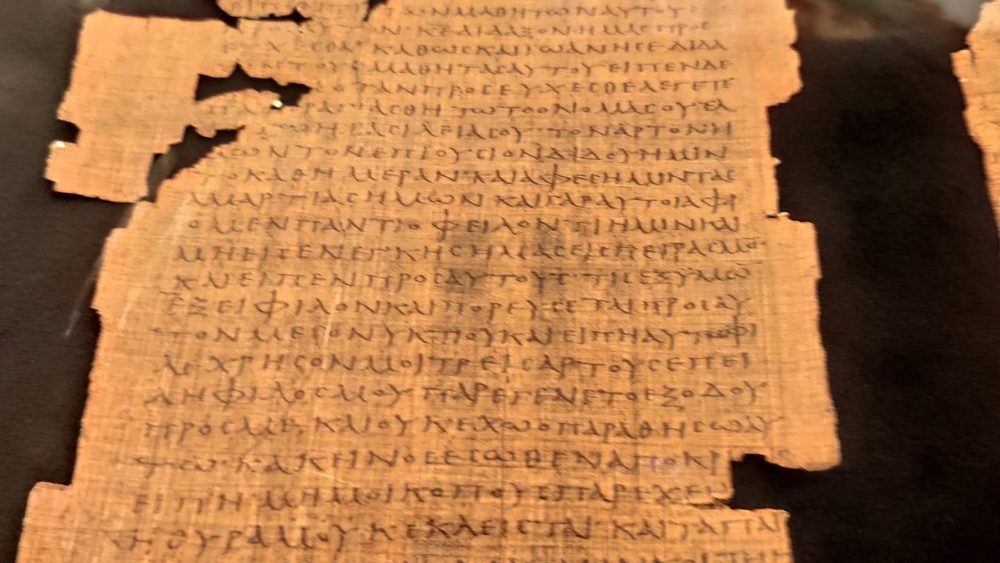 ΤΩΝΜΑΘΗΤΩΝΑΥΤΟΥ
ΚΕΔΙΔΑΞΟΝΗΜΑϹΠΡΟϹ
ΕΥΧΕϹΘΑΙΚΑΘΩϹΚΑΙΙΩΑΝΗϹΕΔΙΔΑ
ΤΟΥϹΜΑΘΗΤΑϹΑΥΤΟΥΕΙΠΕΝΔΕ
ΟΤΑΝΠΡΟϹΕΥΧΕϹΘΕΛΕΓΕΤΕ
ΠΑΤΕΡΑΓΙΑϹΘΗΤΩΤΟΟΝΟΜΑϹΟΥΕΛ
ΗΒΑϹΙΛΕΙΑϹΟΥΤΟΝΑΡΤΟΝΗ
ΜΩΝΤΟΝΕΠΙΟΥϹΙΟΝΔΙΔΟΥΗΜΙΝ
ΤΟΚΑΘΗΜΕΡΑΝΚΑΙΑΦΕϹΗΜΙΝΤΑϹ
ΑΜΑΡΤΙΑϹΗΜΩΝΚΑΙΓΑΡΑΥΤΟΙΑΦΙ
ΟΜΕΝΠΑΝΤΙΟΦΕΙΛΟΝΤΙΗΜΙΝΚΑΙ
ΜΗΕΙϹΕΝΕΓΚΗϹΗΜΑϹΕΙϹΠΕΙΡΑϹΜΟ
ΚΑΙΕΙΠΕΝΠΡΟϹΑΥΤΟΥϹΤΙϹΕΞΥΜΩ
ΕΞΕΙΦΙΛΟΝΚΑΙΠΟΡΕΥϹΕΤΑΙΠΡΟϹΑΥ
ΤΟΝΜΕϹΟΝΥΚΤΙΟΥΚΑΙΕΙΠΗΑΥΤΩΦΙ
ΛΕΧΡΗϹΟΝΜΟΙΤΡΕΙϹΑΡΤΟΥϹΕΠΕΙ
ΔΗΦΙΛΟϹΜΟΥΠΑΡΕΓΕΝΕΤΟΕΞΟΔΟΥ
ΠΡΟϹΜΕΚΑΙΟΥΚΕΧΩΟΠΑΡΑΘΗϹΩΑΥ
ΤΩ·ΚΑΚΕΙΝΟϹΕϹΩΘΕΝΑΠΟΚΡΙ
ΕΙΠΗΜΗΜΟΙΚΟΠΟΥϹΠΑΡΕΧΕ
ΗΘΥΡΑΜΟΥΚΕΚΛΕΙϹΤΑΙΚΑΙΤΑΠΑΙ